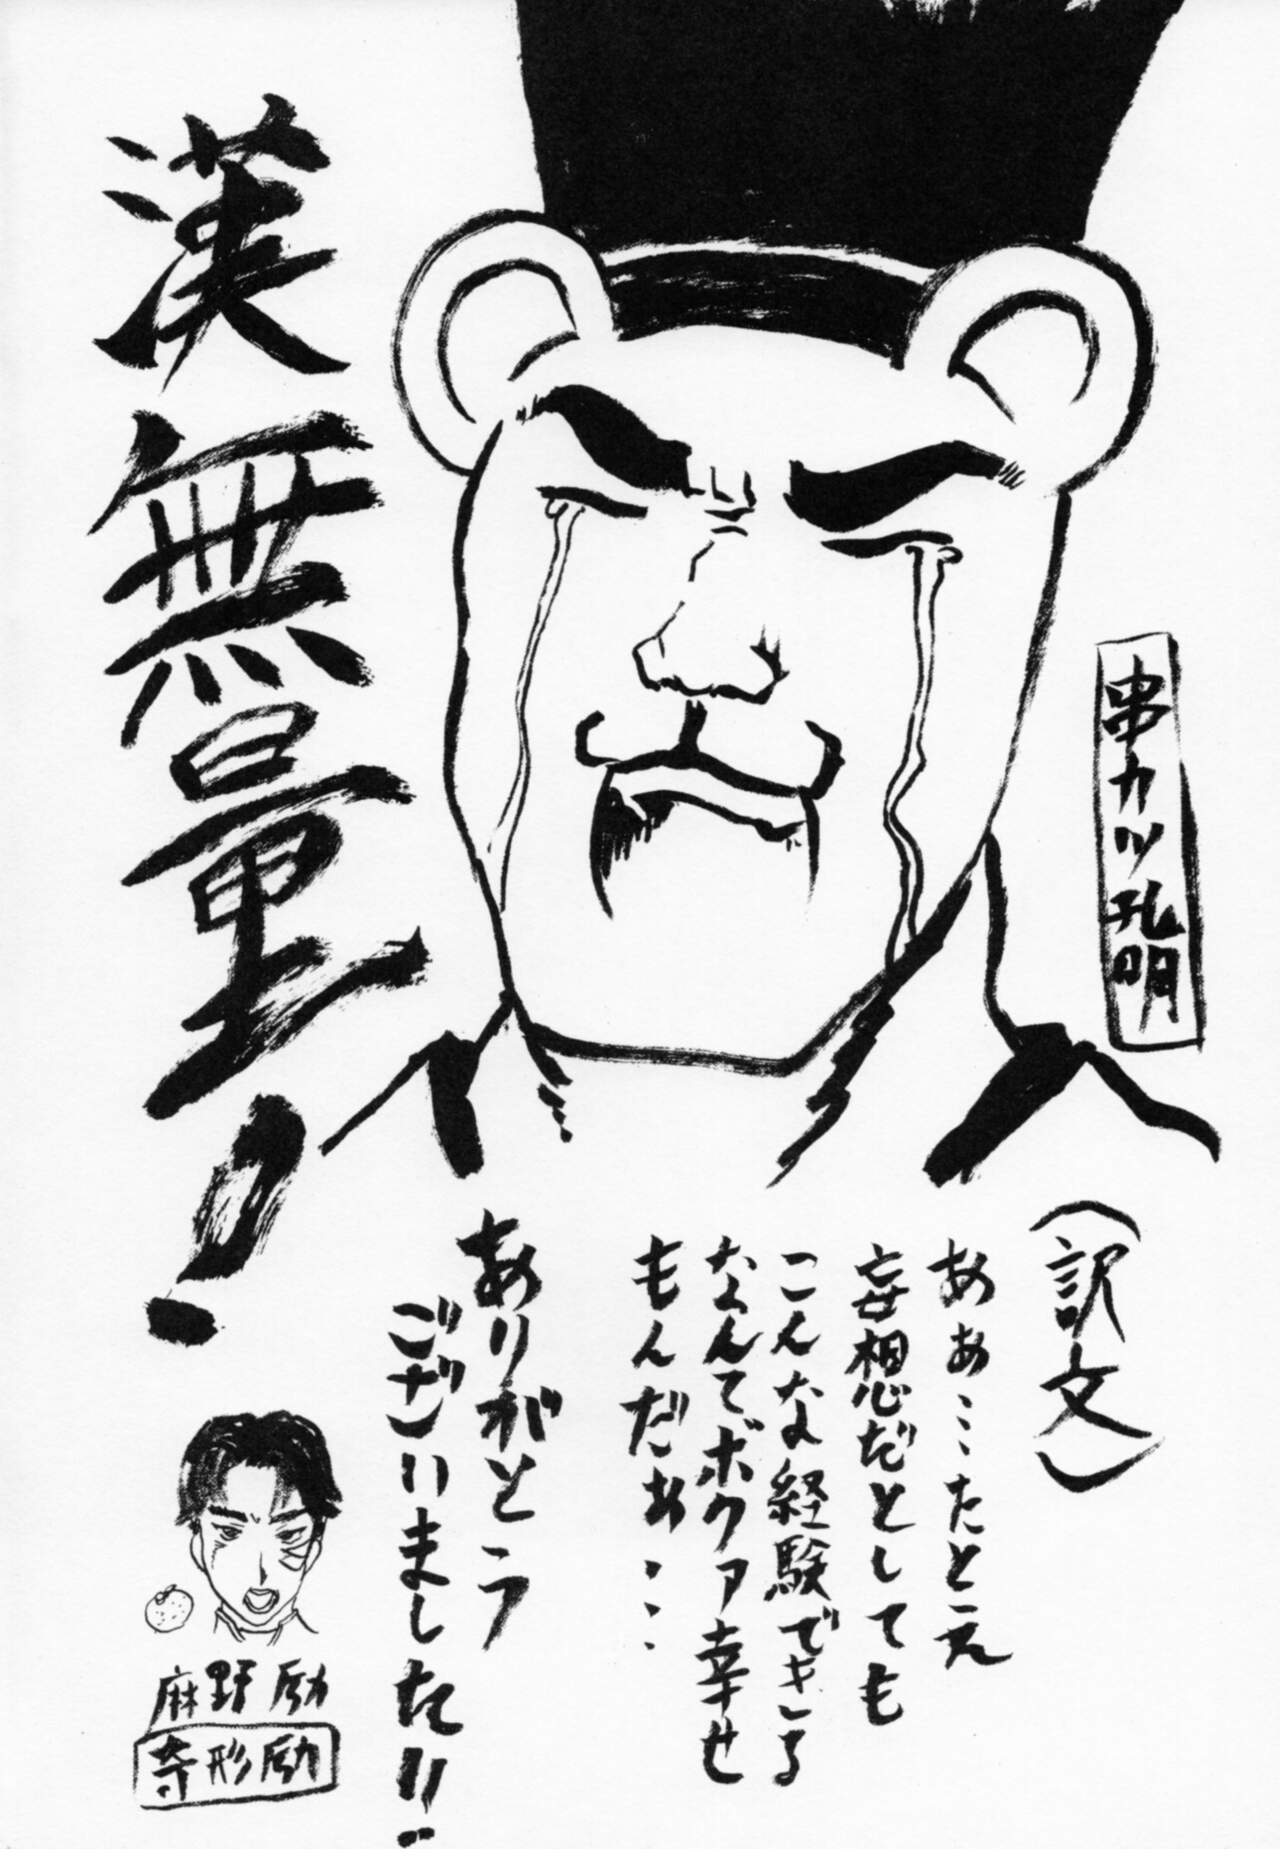 漢無量！
串カツ孔明
（訳文）
ああ…たとえ
妄想だとしても
こんな経験できる
なんてボクァ幸せ
もんだぁ…
ありがとう
ございました!!
麻野励
寺形励